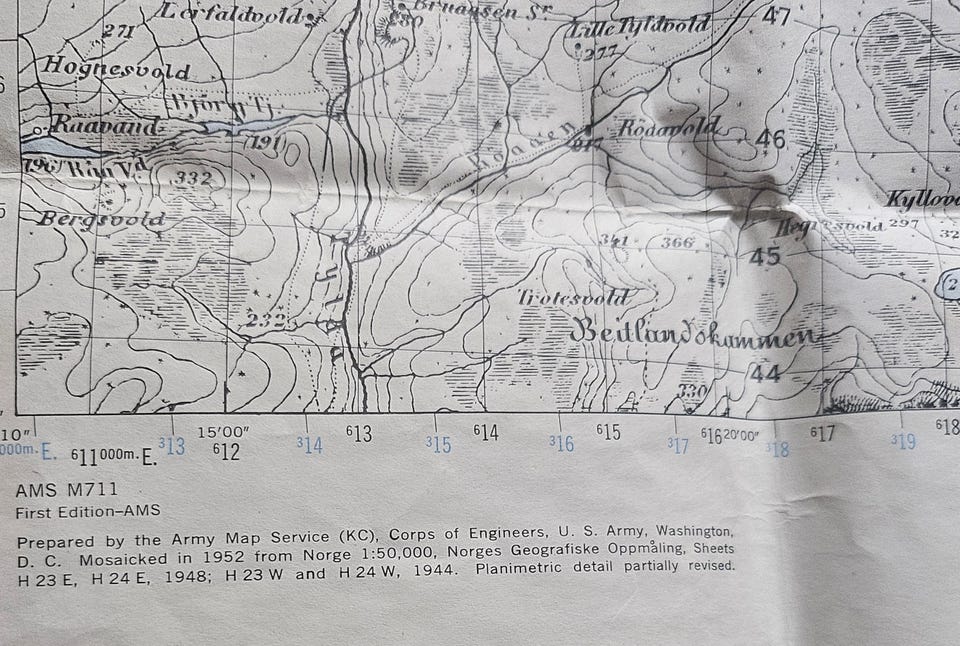 Lerfaldvold
Bruaasen Sr
280
47
271
Lille Tyldvold
277
Hognesvold
Björn Tj.
Raavand
191
Rödavold
46
196
Raa Vd
332
Kyllovo
Bergsvold
Hegresvold
297
32
341
366
45
2
Trotesvold
232
Beitlandskammen
44
330
10"
15'00"
613
614
615
616
20'00"
617
618
000m.E.
611000m.E.
313
612
314
315
316
317
318
319
AMS M711
First Edition–AMS
Prepared by the Army Map Service (KC), Corps of Engineers, U. S. Army, Washington,
D. C. Mosaicked in 1952 from Norge 1:50,000, Norges Geografiske Oppmåling, Sheets
H 23 E, H 24 E, 1948; H 23 W and H 24 W, 1944. Planimetric detail partially revised.